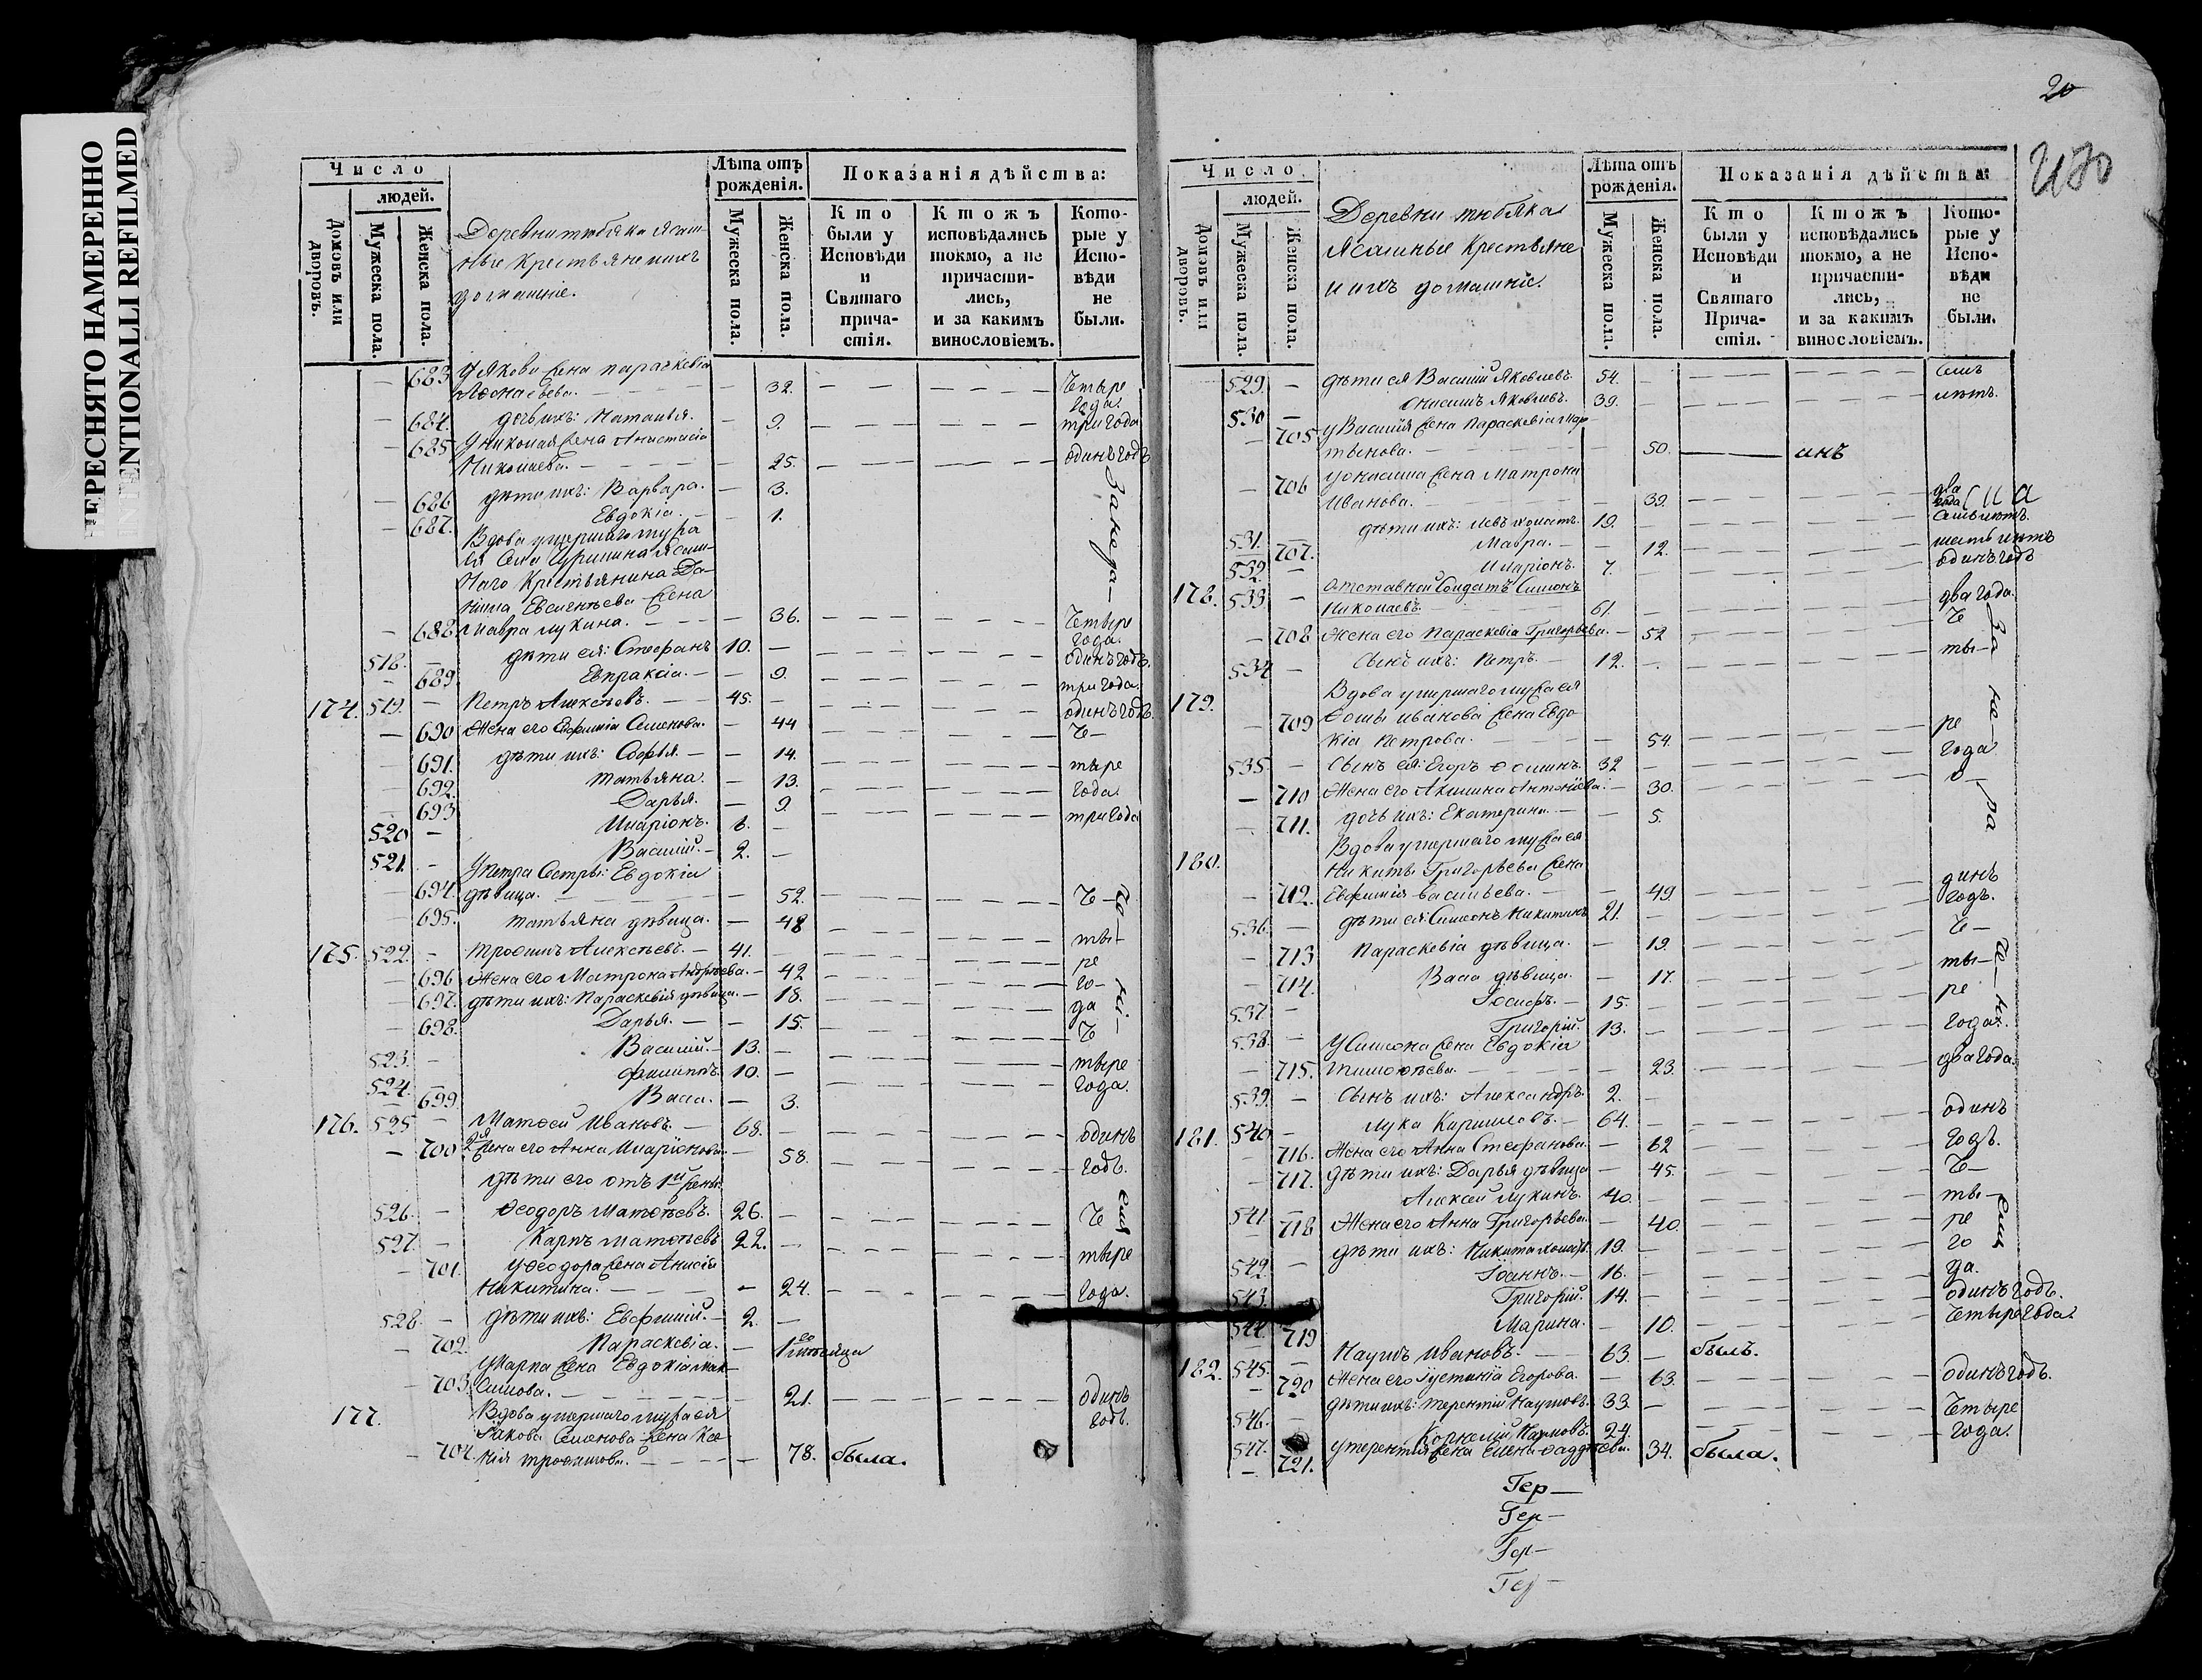 ПЕРЕСНЯТО НАМЕРЕННО
INTENTIONALLI REFILMED
20
Число
людей.
Домовъ или дворовъ.
Мужеска пола.
Женска пола.
Деревни тюбяка ясаш-
ные Крестьяне ихъ
домашние.
Лѣта отъ рожденія.
Мужеска пола.
Женска пола.
Показанія дѣйства:
Кто были у Исповѣди и Святаго причастія.
Ктожъ исповѣдались токмо, а не причастились, и за какимъ винословіемъ.
Которые у Исповѣди не были.
683 У Якова жена параскевіа
32. четыре года.
684. дочь ихъ: Наталья. 9. три года
685 У Николая жена Анастасіа
Николаева. 25. одинъ годъ
686 дѣти ихъ: Варвара. 3.
687. Евдокіа. 1.
Вдова умершаго мужа
ея Села Чурилина ясаш-
наго Крестьянина Да-
нила Евсигнѣева жена
688 Мавра лукина. 36. четыре года.
518. дѣти ея: Стефанъ 10. одинъ годъ.
689. Евпраксіа. 9. три года.
174. 519. Петръ Алексѣевъ. 45. одинъ годъ.
690 Жена его Евфиміа Семенова. 44 че-
691. дѣти ихъ: Софья. 14. тыре
692. татьяна. 13. года.
693 Дарья. 9. три года
520 Иларіонъ. 6.
521. Василій. 2.
У петра Сестры: Евдокіа
694. дѣвица. 52. че-
695. татьяна дѣвица. 48 ты-
175. 522. трофимъ Алексѣевъ. 41. ре
696 Жена его Матрона Андрѣева. 42 го-
697. дѣти ихъ: Параскевія дѣвица. 18. да
698. Дарья. 15. че
523. Василій. 13. тыре
524. филиппъ. 10. года.
699. Васса. 3.
176. 525 Матѳей Ивановъ. 68. одинъ
700 2я жена его Анна Иларіонова. 58. годъ.
дѣти его отъ 1й жены
526. Ѳеодоръ Матѳѣевъ. 26. че
527. Карпъ Матѳѣевъ 22. тыре
701. У Ѳеодора жена Анисія
Никитина. 24. года.
528. дѣти ихъ: Евфимій. 2.
702. Параскевіа. 1го мѣсяца
У Карпа жена Евдокіа Мак-
703. симова. 21. одинъ годъ.
177. Вдова умершаго мужа ея
Іакова Семенова жена Ксе-
704. нія трофимова. 78. была.
Число
людей.
Домовъ или дворовъ.
Мужеска пола.
Женска пола.
Деревни тюбяка
Ясашные Крестьяне
и ихъ домашніе.
Лѣта отъ рожденія.
Мужеска пола.
Женска пола.
Показанія дѣйства:
Кто были у Исповѣди и Святаго Причастія.
Ктожъ исповѣдались токмо, а не причастились, и за какимъ винословіемъ.
Которые у Исповѣди не были.
529. дѣти ея Василій Яковлевъ. 54. семь
530 Онисимъ Яковлевъ. 39. лѣтъ.
705 У Василія жена Параскевіа Мар-
тынова. 50.
706 У Онисима жена Матрона
Иванова. 39. два года
531. дѣти ихъ: Левъ холостъ. 19. семь лѣтъ.
707. Мавра. 12. шесть лѣтъ
532. Иларіонъ. 7. одинъ годъ
178. 533. Отставной Солдатъ Симонъ
Николаевъ. 61. два года.
708 Жена его Параскевіа Григорьева. 52 че
534 Сынъ ихъ: Петръ. 12. ты-
179. Вдова умершаго мужа ея
709 Ѳомы иванова жена Евдо-
кіа Петрова. 54. ре
535. Сынъ ея: Егоръ Ѳоминъ. 32 года
710 Жена его Акилина Антоніева. 30. о-
711. дочь ихъ: Екатерина. 5.
180. Вдова умершаго мужа ея
Никиты Григорьева жена
712. Евфимія Васильева. 49 динъ
536. дѣти ея: Симеонъ Никитинъ 21. годъ.
713 Параскевіа дѣвица. 19 че-
714. Васса дѣвица. 17. ты-
537 Іосифъ. 15. ре
538. Григорій. 13. года.
У Симеона жена Евдокіа
715. тимоѳѣева. 23. два года.
539. Сынъ ихъ: Александръ. 2.
181. 540 лука Кириловъ. 64. одинъ
716. Жена его Анна Стефанова. 62 годъ.
717. дѣти ихъ: Дарья дѣвица 45. че-
541 Алексей лукинъ. 40. ты-
718 Жена его Анна Григорьева. 40. ре
542. дѣти ихъ: Никита холостъ. 19. го
543. Іоаннъ. 16. да.
544. Григорій. 14. одинъ годъ.
719 Марина. 10. четыре года.
182. 545. Наумъ Ивановъ. 63. былъ.
720 Жена его Іустиніа Егорова. 63. одинъ годъ.
546. дѣти ихъ: терентій Наумовъ. 33. четыре
547. Корнелій Наумовъ. 24. года.
721. У терентія жена Елена Ѳаддѣева. 34. была.
Гер-
Гер-
Гер-
Гер-